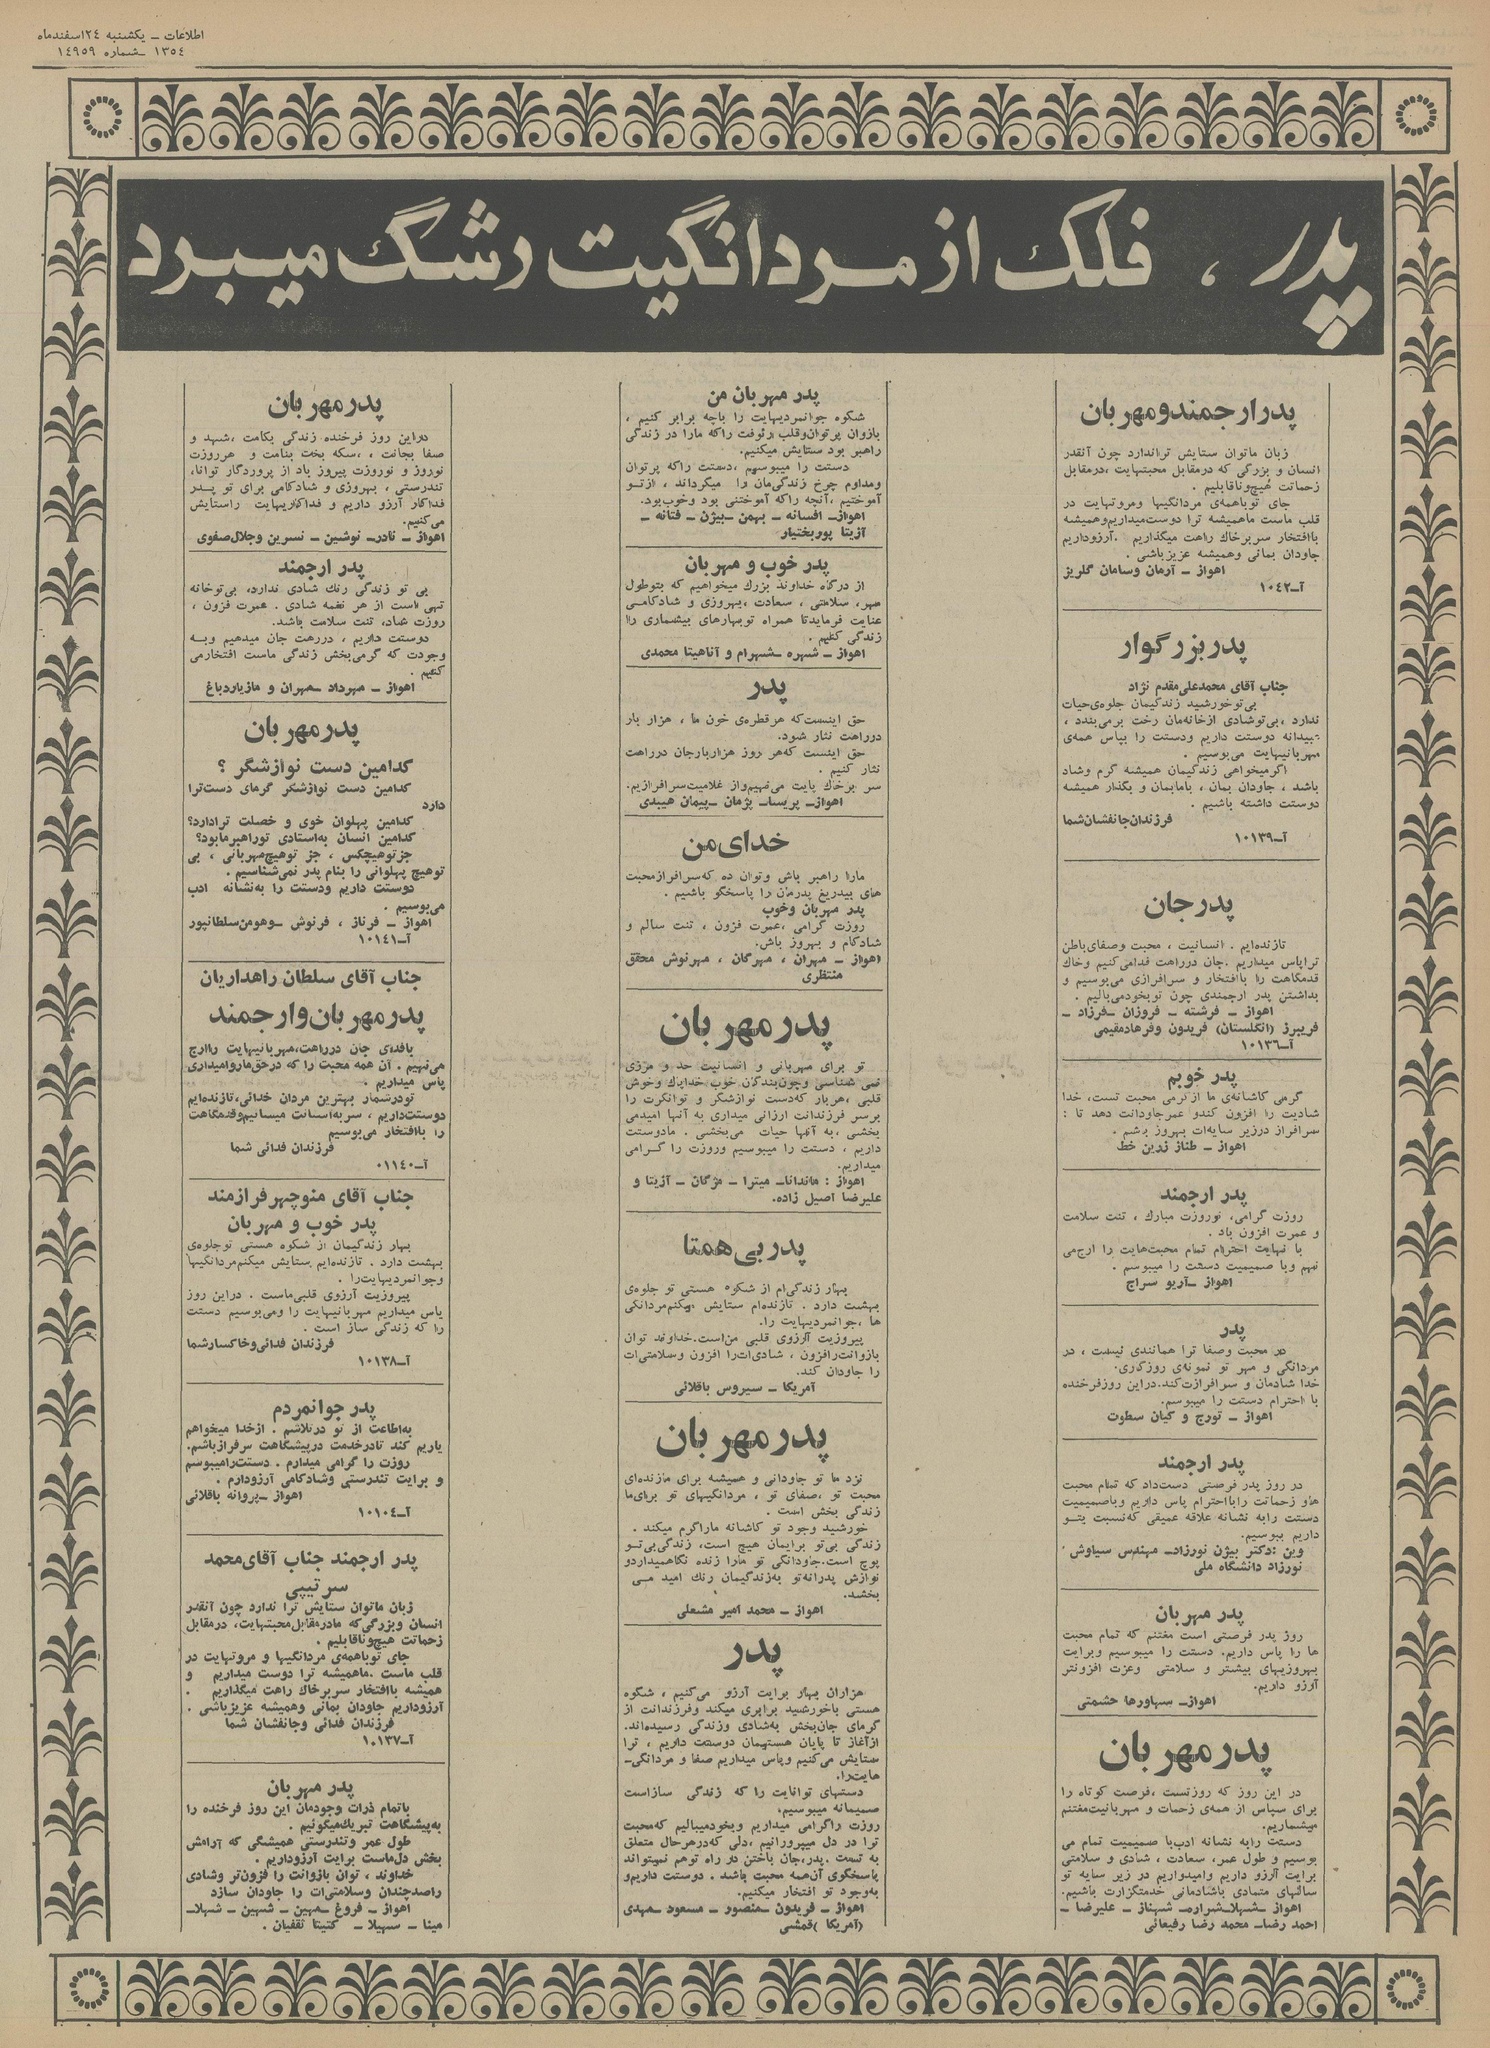 اطلاعات ـ یکشنبه ۲٤ اسفندماه
۱۳٥٤ ـ شماره ۱٤۹٥۹
پدر ، فلک از مردانگیت رشگ میبرد
پدر ارجمند و مهربان
زبان ماتوان ستایش ترا ندارد چون آنقدر
انسان و بزرگی که درمقابل محبتهایت ،درمقابل
زحماتت هیچ‌وناقابلیم .
جای توباهمه‌ی مردانگیها ومروتهایت در
قلب ماست ماهمیشه ترا دوست‌میداریم‌وهمیشه
باافتخار سربرخاك راهت میگذاریم .آرزوداریم
جاودان بمانی وهمیشه عزیزباشی .
اهواز ـ آرمان وسامان گلریز
آـ۱۰٤۲
پدر بزرگوار
جناب آقای محمدعلی‌مقدم نژاد
بی‌توخورشید زندگیمان جلوه‌ی‌حیات
ندارد ،بی‌توشادی ازخانه‌مان رخت برمی‌بندد ،
دوستت داریم ودستت را بپاس همه‌ی
مهربانیهایت می‌بوسیم .
اگرمیخواهی زندگیمان همیشه گرم وشاد
باشد ، جاودان بمان ، بامابمان و بگذار همیشه
دوستت داشته باشیم .
فرزندان‌جانفشان‌شما
آـ۱۰۱۳۹
پدر جان
تازنده‌ایم . انسانیت ، محبت وصفای‌باطن
تراپاس میداریم .جان درراهت فدامی‌کنیم وخاك
قدمگاهت را باافتخار و سرافرازی می‌بوسیم و
بداشتن پدر ارجمندی چون توبخودمی‌بالیم .
اهواز ـ فرشته ـ فروزان ـفرزاد ـ
فریبرز (انگلستان) فریدون وفرهادمقیمی
آـ۱۰۱۳٦
پدر خوبم
گرمی کاشانه‌ی ما ازگرمی محبت تست، خدا
شادیت را افزون کندو عمرجاودانت دهد تا :
سرافراز درزیر سایه‌ات بهروز بزیم .
اهواز ـ طناز زرین خط
پدر ارجمند
روزت گرامی، نوروزت مبارك ، تنت سلامت
و عمرت افزون باد .
با نهایت احترام تمام محبت‌هایت را ارج‌می
نهم وبا صمیمیت دستت را میبوسم .
اهواز ـآریو سراج
پدر
در محبت وصفا ترا همانندی نیست ، در
مردانگی و مهر تو نمونه‌ی روزگاری.
خدا شادمان و سرافرازت‌کند.دراین روزفرخنده
با احترام دستت را میبوسم.
اهواز ـ تورج و کیان سطوت
پدر ارجمند
در روز پدر فرصتی دست‌داد که تمام محبت
هاو زحماتت راباحترام پاس داریم وباصمیمیت
دستت رابه نشانه علاقه عمیقی که‌نسبت بتو
داریم ببوسیم.
وین :دکتر بیژن نورزادـ مهندس سیاوش
نورزاد دانشگاه ملی
پدر مهربان
روز پدر فرصتی است مغتنم که تمام محبت
ها را پاس داریم. دستت را میبوسیم وبرایت
بهروزیهای بیشتر و سلامتی وعزت افزونتر
آرزو داریم.
اهوازـ سپاورها حشمتی
پدر مهربان
در این روز که روزتست ،فرصت کوتاه را
برای سپاس از همه‌ی زحمات و مهربانیت‌مغتنم
میشماریم.
دستت رابه نشانه ادب‌با صمیمیت تمام می
بوسیم و طول عمر، سعادت ، شادی و سلامتی
برایت آرزو داریم وامیدواریم در زیر سایه تو
سالهای متمادی باشادمانی خدمتگزارت باشیم.
اهواز ـشهلاـشرارهـ شهناز ـ علیرضا ـ
احمد رضاـ محمد رضا رفیعائی
پدر مهربان من
شکوه جوانمردیهایت را باچه برابر کنیم ،
بازوان پرتوان‌وقلب رئوفت راکه مارا در زندگی
راهبر بود ستایش میکنیم.
دستت را میبوسیم ،دستت راکه پرتوان
ومداوم چرخ زندگی‌مان را میگرداند ، ازتو
آموختیم ،آنچه راکه آموختنی بود وخوب‌بود.
اهوازـ افسانه ـ بهمن ـبیژن ـ فتانه ـ
آزیتا پوربختیار
پدر خوب و مهربان
از درگاه خداوند بزرك میخواهیم که بتوطول
عمر، سلامتی ، سعادت ،بهروزی و شادکامی
عنایت فرمایدتا همراه توبهارهای بیشماری را
زندگی کنیم .
اهواز ـ شهره ـشهرام و آناهیتا محمدی
پدر
حق اینست‌که هرقطره‌ی خون ما ، هزار بار
درراهت نثار شود.
حق اینست که‌هر روز هزاربارجان درراهت
نثار کنیم .
سر برخاك پایت می‌نهیم‌واز غلامیت‌سرافرازیم.
اهوازـ پریساـ پژمان ـپیمان هیبدی
خدای من
مارا راهبر باش وتوان ده که‌سرافرازمحبت
های بیدریغ پدرمان را پاسخگو باشیم .
پدر مهربان وخوب
روزت گرامی ،عمرت فزون ، تنت سالم و
شادکام و بهروز باش.
اهواز ـ مهران ، مهرگان ، مهرنوش محقق
منتظری
پدر مهربان
تو برای مهربانی و انسانیت حد و مرزی
نمی شناسی وچون‌بندگان خوب خدا،پاك وخوش
قلبی ،هربار که‌دست نوازشگر و توانگرت را
برسر فرزندانت ارزانی میداری به آنها امیدمی
بخشی ،به آنها حیات می‌بخشی . مادوستت
داریم ، دستت را میبوسیم وروزت را گرامی
میداریم.
اهواز : ماندانـاـ میترا ـ مژگان ـ آزیتا و
علیرضا اصیل زاده.
پدر بی همتا
بهار زندگی‌ام از شکوه هستی تو جلوه‌ی
بهشت دارد . تازنده‌ام ستایش میکنم‌مردانگی
ها ،جوانمردیهایت را.
پیروزیت آرزوی قلبی من‌است.خداوند توان
بازوانت‌رافزون ، شادی‌ات‌را افزون وسلامتی‌ات
را جاودان کند.
آمریکا ـ سیروس باقلائی
پدر مهربان
نزد ما تو جاودانی و همیشه برای مازنده‌ای
محبت تو ،صفای تو ، مردانگیهای تو برای‌ما
زندگی بخش است .
خورشید وجود تو کاشانه ماراگرم میکند .
زندگی بی‌تو برایمان هیچ است، زندگی‌بی‌تو
پوچ است.جاودانگی تو مارا زنده نگاهمیداردو
نوازش پدرانه‌تو به‌زندگیمان رنك امید می
بخشد.
اهواز ـ محمد امیر مشعلی
پدر
هزاران بهار برایت آرزو می‌کنیم ، شکوه
هستی باخورشید برابری میکند وفرزندانت از
گرمای جان‌بخش به‌شادی وزندگی رسیده‌اند.
ازآغاز تا پایان هستیمان دوستت داریم ، ترا
ستایش می‌کنیم وپاس میداریم صفا و مردانگی‌ـ
هایت‌را.
دستهای توانایت را که زندگی سازاست
صمیمانه میبوسیم.
روزت راگرامی میداریم وبخودمیبالیم که‌محبت
ترا در دل میپرورانیم ،دلی که‌درهرحال متعلق
به تست .پدر،جان باختن در راه توهم نمیتواند
پاسخگوی آن‌همه محبت باشد . دوستت داریم‌و
به‌وجود تو افتخار میکنیم.
اهواز ـ فریدون ـمنصور ـ مسعود ـمهدی
(آمریکا )قمشی
پدر مهربان
دراین روز فرخنده زندگی بکامت ،شهد و
صفا بجانت ، ،سکه بخت بنامت و هرروزت
نوروز و نوروزت پیروز باد از پروردگار توانا،
تندرستی ، بهروزی و شادکامی برای تو پدر
فداکار آرزو داریم و فداکاریهایت راستایش
می‌کنیم.
اهواز ـ نادرـ نوشین ـ نسرین وجلال‌صفوی
پدر ارجمند
بی تو زندگی رنك شادی ندارد، بی‌توخانه
تهی است از هر نغمه شادی . عمرت فزون ،
روزت شاد، تنت سلامت باشد.
دوستت داریم ، درراهت جان میدهیم وبه
وجودت که گرمی‌بخش زندگی ماست افتخارمی
کنیم .
اهواز ـ مهرداد ـمهران و مازیاردباغ
پدر مهربان
کدامین دست نوازشگر ؟
کدامین دست نوازشگر گرمای دست‌ترا
دارد
کدامین پهلوان خوی و خصلت ترادارد؟
کدامین انسان به‌استادی توراهبرمابود؟
جزتوهیچکس ، جز توهیچ‌مهربانی ، بی
توهیچ پهلوانی را بنام پدر نمی‌شناسیم .
دوستت داریم ودستت را به‌نشانه ادب
می‌بوسیم .
اهواز ـ فرناز ، فرنوش ـوهومن‌سلطانپور
آـ۱۰۱٤۱
جناب آقای سلطان راهداریان
پدر مهربان و ارجمند
بافدای جان درراهت،مهربانیهایت راارج
می‌نهیم . آن همه محبت را که درحق‌ماروامیداری
پاس میداریم .
تودرشمار بهترین مردان خدائی،تازنده‌ایم
دوستت‌داریم ، سربه‌آستانت میسائیم‌وقدمگاهت
را باافتخار می‌بوسیم
فرزندان فدائی شما
آـ۰۱۱٤۰
جناب آقای منوچهر فرازمند
پدر خوب و مهربان
بهار زندگیمان از شکوه هستی توجلوه‌ی
بهشت دارد . تازنده‌ایم ستایش میکنم‌مردانگیها
وجوانمردیهایت‌را .
پیروزیت آرزوی قلبی‌ماست . دراین روز
پاس میداریم مهربانیهایت را ومی‌بوسیم دستت
را که زندگی ساز است .
فرزندان فدائی‌وخاکسارشما
آـ۱۰۱۳۸
پدر جوانمردم
به‌اطاعت از تو درتلاشم . ازخدا میخواهم
یاریم کند تادرخدمت درپیشگاهت سرفرازباشم.
روزت را گرامی میدارم . دستت‌رامیبوسم
و برایت تندرستی وشادکامی آرزودارم .
اهواز ـپروانه باقلائی
آـ۱۰۱۰٤
پدر ارجمند جناب آقای محمد
سرتیپی
زبان ماتوان ستایش ترا ندارد چون آنقدر
انسان وبزرگی‌که مادرمقابل‌محبتهایت، درمقابل
زحماتت هیچ‌وناقابلیم .
جای توباهمه‌ی مردانگیها و مروتهایت در
قلب ماست .ماهمیشه ترا دوست میداریم و
همیشه باافتخار سربرخاك راهت میگذاریم .
آرزوداریم جاودان بمانی وهمیشه عزیزباشی .
فرزندان فدائی وجانفشان شما
آـ۱۰۱۳۷
پدر مهربان
باتمام ذرات وجودمان این روز فرخنده را
به‌پیشگاهت تبریك‌میگوئیم .
طول عمر وتندرستی همیشگی که آرامش
بخش دل‌ماست برایت آرزوداریم .
خداوند ، توان بازوانت را فزون‌تر وشادی
راصدچندان وسلامتی‌ات را جاودان سازد
اهواز ـ فروغ ـمهین ـ شهین ـ شهلاـ
مینا ـ سهیلا ـ کتیتا ثقفیان .